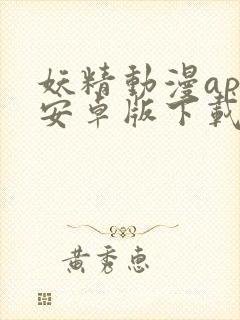 妖精動漫ap
安卓版下載
黃秀惠